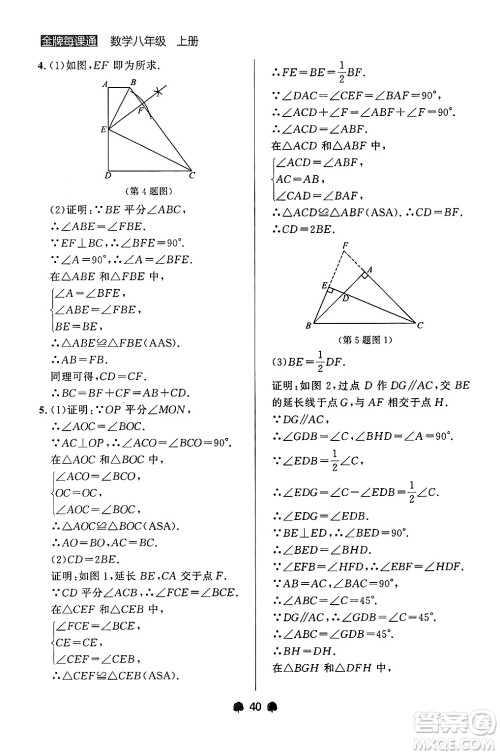 金牌每课通 数学八年级 上册
4. (1)如图，EF 即为所求.
A B F E D C
(第 4 题图)
(2)证明：∵BE 平分∠ABC，
∴∠ABE=∠FBE.
∵EF⊥BC，∴∠BFE=90°.
∵∠A=90°，∴∠A=∠BFE.
在△ABE 和△FBE 中，
∠A=∠BFE，
∠ABE=∠FBE，
BE=BE，
∴△ABE≌△FBE(AAS).
∴AB=FB.
同理可得，CD=CF.
∴BC=CF+BF=AB+CD.
5. (1)证明：∵OP 平分∠MON，
∴∠AOC=∠BOC.
∵AC⊥OP，∴∠ACO=∠BCO=90°.
在△AOC 和△BOC 中，
∠ACO=∠BCO，
OC=OC，
∠AOC=∠BOC，
∴△AOC≌△BOC(ASA).
∴AO=BO，AC=BC.
(2)CD=2BE.
证明：如图 1，延长 BE，CA 交于点 F.
∵CD 平分∠ACB，∴∠FCE=∠BCE.
在△CEF 和△CEB 中，
∠FCE=∠BCE，
CE=CE，
∠CEF=∠CEB，
∴△CEF≌△CEB(ASA).
∴FE=BE=1/2BF.
∵∠DAC=∠CEF=∠BAF=90°.
∴∠ACD+∠F=∠ABF+∠F=90°.
∴∠ACD=∠ABF.
在△ACD 和△ABF 中，
∠ACD=∠ABF，
AC=AB，
∠CAD=∠BAF，
∴△ACD≌△ABF(ASA).
∴CD=BF.
∴CD=2BE.
F A E D B C
(第 5 题图 1)
(3)BE=1/2DF.
证明：如图 2，过点 D 作 DG∥AC，交 BE
的延长线于点 G，与 AF 相交于点 H.
∵DG∥AC，
∴∠GDB=∠C，∠BHD=∠A=90°.
∵∠EDB=1/2∠C，
∴∠EDB=∠EDG=1/2∠C.
∵BE⊥ED，∴∠BED=90°.
∴∠BED=∠BHD.
∵∠EFB=∠HFD，
∴∠EBF=∠HDF.
∵AB=AC，∠BAC=90°，
∴∠C=∠ABC=45°.
∵DG∥AC，
∴∠GDB=∠C=45°.
∴∠GDB=∠ABC=45°.
∴BH=DH.
在△BGH 和△DFH 中，
40
答案圈
MXQE.COM